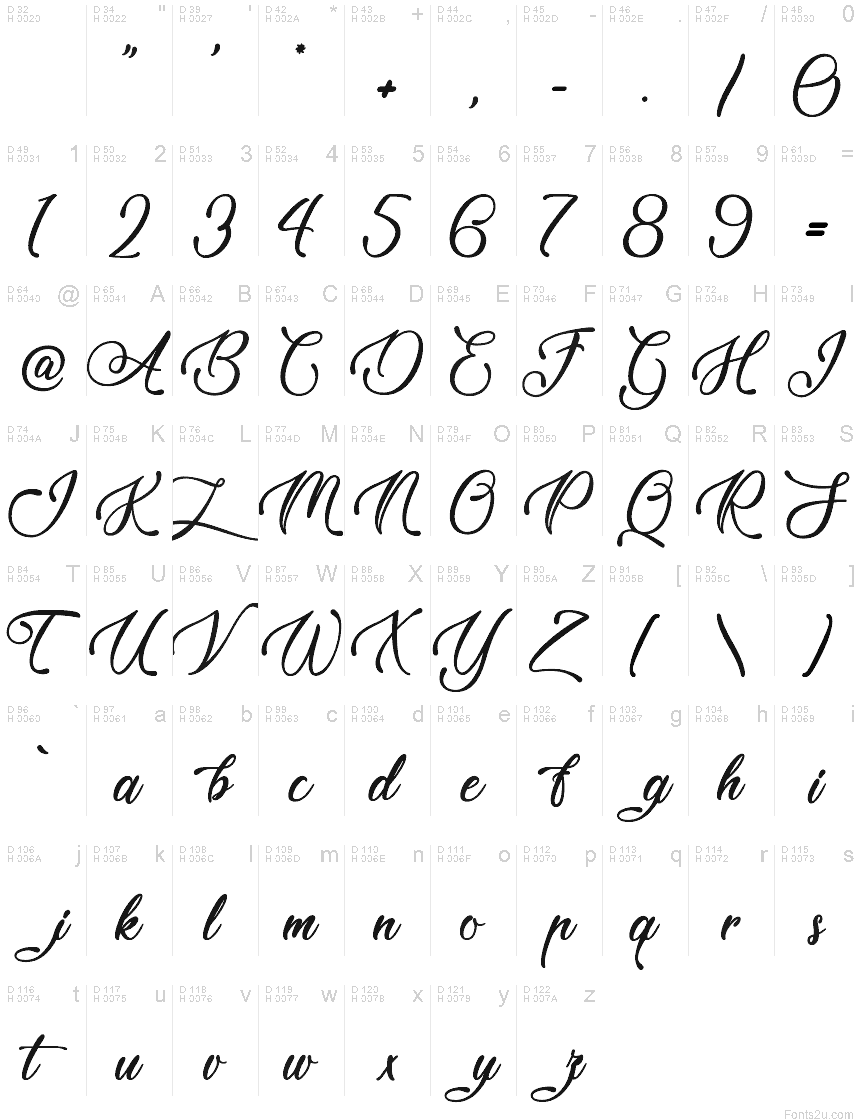 D 32 H 0020 D 34 H 0022 " D 39 H 0027 ' D 42 H 002A * D 43 H 002B + D 44 H 002C , D 45 H 002D - D 46 H 002E . D 47 H 002F / D 48 H 0030 0
" ' * + , - . / 0
D 49 H 0031 1 D 50 H 0032 2 D 51 H 0033 3 D 52 H 0034 4 D 53 H 0035 5 D 54 H 0036 6 D 55 H 0037 7 D 56 H 0038 8 D 57 H 0039 9 D 61 H 003D =
1 2 3 4 5 6 7 8 9 =
D 64 H 0040 @ D 65 H 0041 A D 66 H 0042 B D 67 H 0043 C D 68 H 0044 D D 69 H 0045 E D 70 H 0046 F D 71 H 0047 G D 72 H 0048 H D 73 H 0049 I
@ A B C D E F G H I
D 74 H 004A J D 75 H 004B K D 76 H 004C L D 77 H 004D M D 78 H 004E N D 79 H 004F O D 80 H 0050 P D 81 H 0051 Q D 82 H 0052 R D 83 H 0053 S
J K L M N O P Q R S
D 84 H 0054 T D 85 H 0055 U D 86 H 0056 V D 87 H 0057 W D 88 H 0058 X D 89 H 0059 Y D 90 H 005A Z D 91 H 005B [ D 92 H 005C \ D 93 H 005D ]
T U V W X Y Z ( \ )
D 96 H 0060 ` D 97 H 0061 a D 98 H 0062 b D 99 H 0063 c D 100 H 0064 d D 101 H 0065 e D 102 H 0066 f D 103 H 0067 g D 104 H 0068 h D 105 H 0069 i
` a b c d e f g h i
D 106 H 006A j D 107 H 006B k D 108 H 006C l D 109 H 006D m D 110 H 006E n D 111 H 006F o D 112 H 0070 p D 113 H 0071 q D 114 H 0072 r D 115 H 0073 s
j k l m n o p q r s
D 116 H 0074 t D 117 H 0075 u D 118 H 0076 v D 119 H 0077 w D 120 H 0078 x D 121 H 0079 y D 122 H 007A z
t u v w x y z
Fonts2u.com